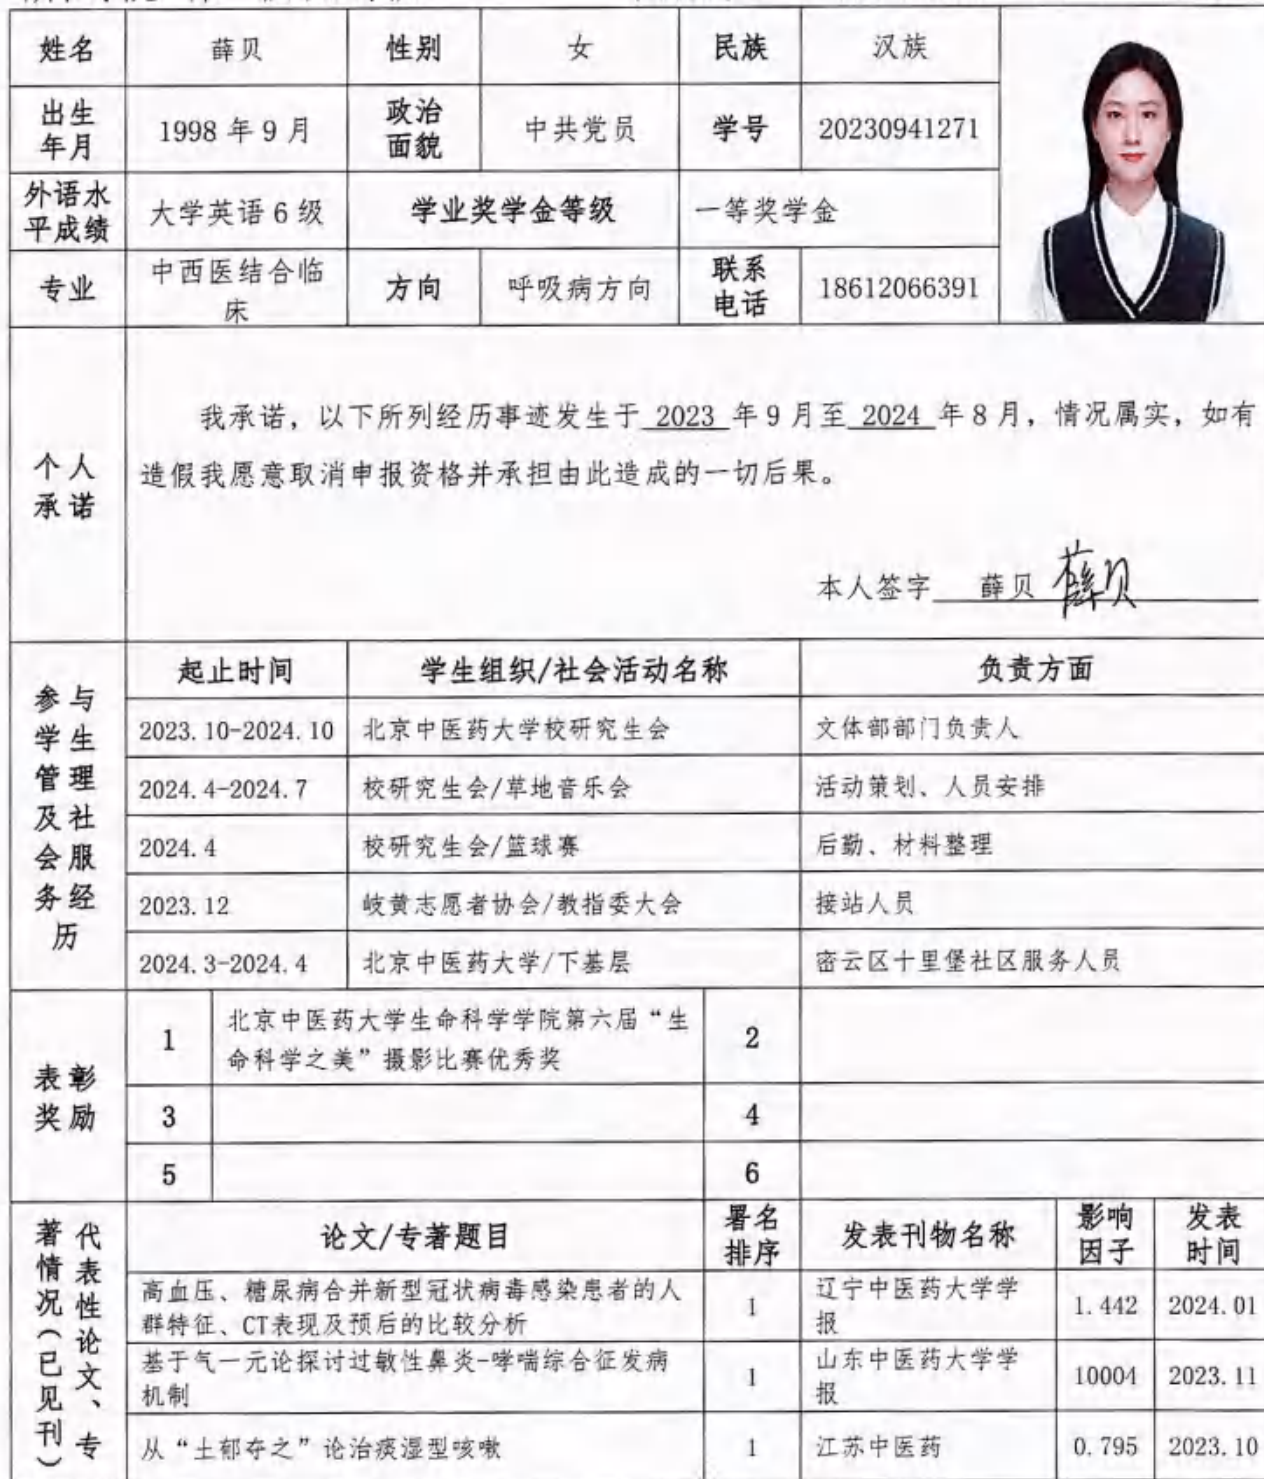 姓名 薛贝 性别 女 民族 汉族
出生年月 1998 年 9 月 政治面貌 中共党员 学号 20230941271
外语水平成绩 大学英语 6 级 学业奖学金等级 一等奖学金
专业 中西医结合临床 方向 呼吸病方向 联系电话 18612066391
个人承诺
我承诺，以下所列经历事迹发生于 2023 年 9 月至 2024 年 8 月，情况属实，如有
造假我愿意取消申报资格并承担由此造成的一切后果。
本人签字 薛贝 薛贝
参与学生管理及社会服务经历
起止时间 学生组织/社会活动名称 负责方面
2023.10-2024.10 北京中医药大学校研究生会 文体部部门负责人
2024.4-2024.7 校研究生会/草地音乐会 活动策划、人员安排
2024.4 校研究生会/篮球赛 后勤、材料整理
2023.12 岐黄志愿者协会/教指委大会 接站人员
2024.3-2024.4 北京中医药大学/下基层 密云区十里堡社区服务人员
表彰奖励
1 北京中医药大学生命科学学院第六届“生
命科学之美”摄影比赛优秀奖 2
3 4
5 6
代表性论文、专著情况（已见刊）
论文/专著题目 署名排序 发表刊物名称 影响因子 发表时间
高血压、糖尿病合并新型冠状病毒感染患者的人
群特征、CT表现及预后的比较分析 1 辽宁中医药大学学报 1.442 2024.01
基于气一元论探讨过敏性鼻炎-哮喘综合征发病
机制 1 山东中医药大学学报 10004 2023.11
从“土郁夺之”论治痰湿型咳嗽 1 江苏中医药 0.795 2023.10